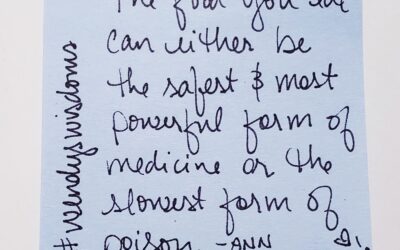 The food you eat
can either be
the safest & most
powerful form of
medicine or the
slowest form of
poison -ANN
#wendyswisdoms